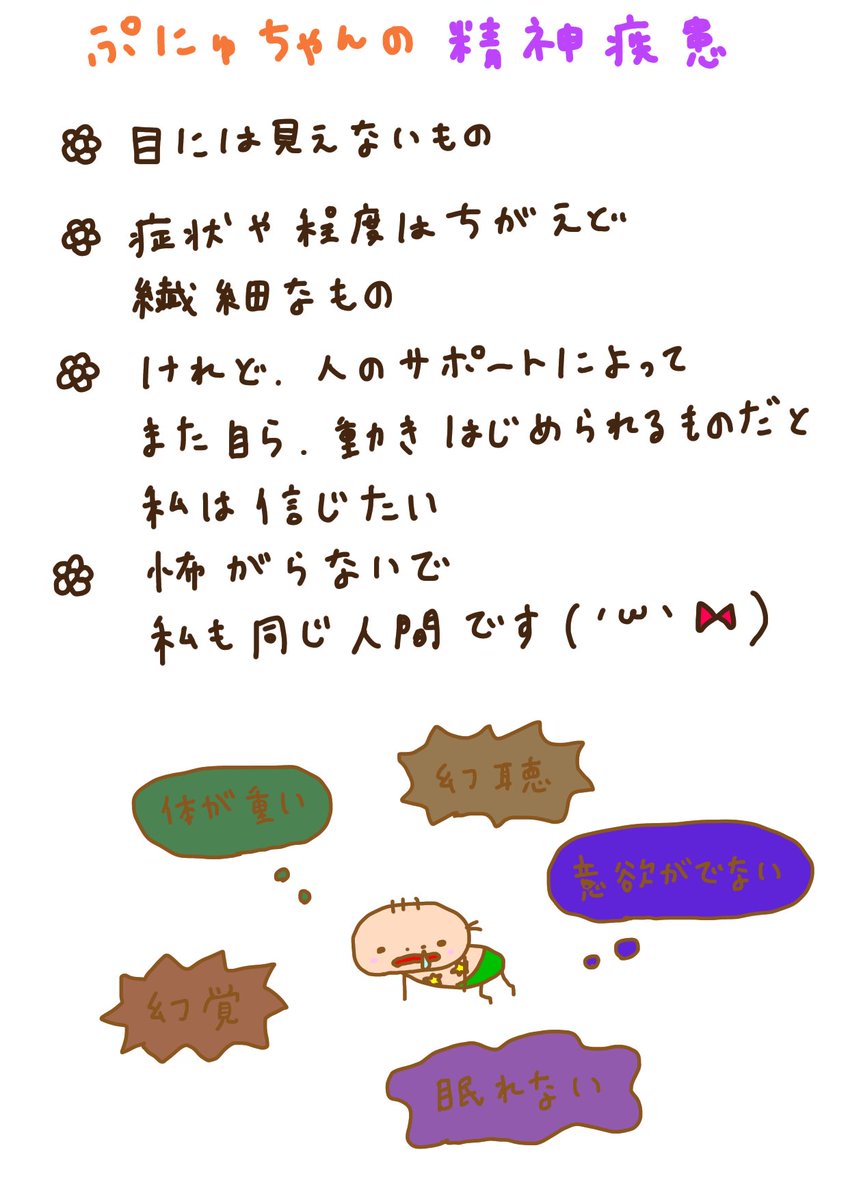 ぷにゅちゃんの精神疾患
目には見えないもの
症状や程度はちがえど
繊細なもの
けれど.人のサポートによって
また自ら.動きはじめられるものだと
私は信じたい
怖がらないで
私も同じ人間です(´ω`⋈)
幻聴
体が重い
意欲がでない
幻覚
眠れない